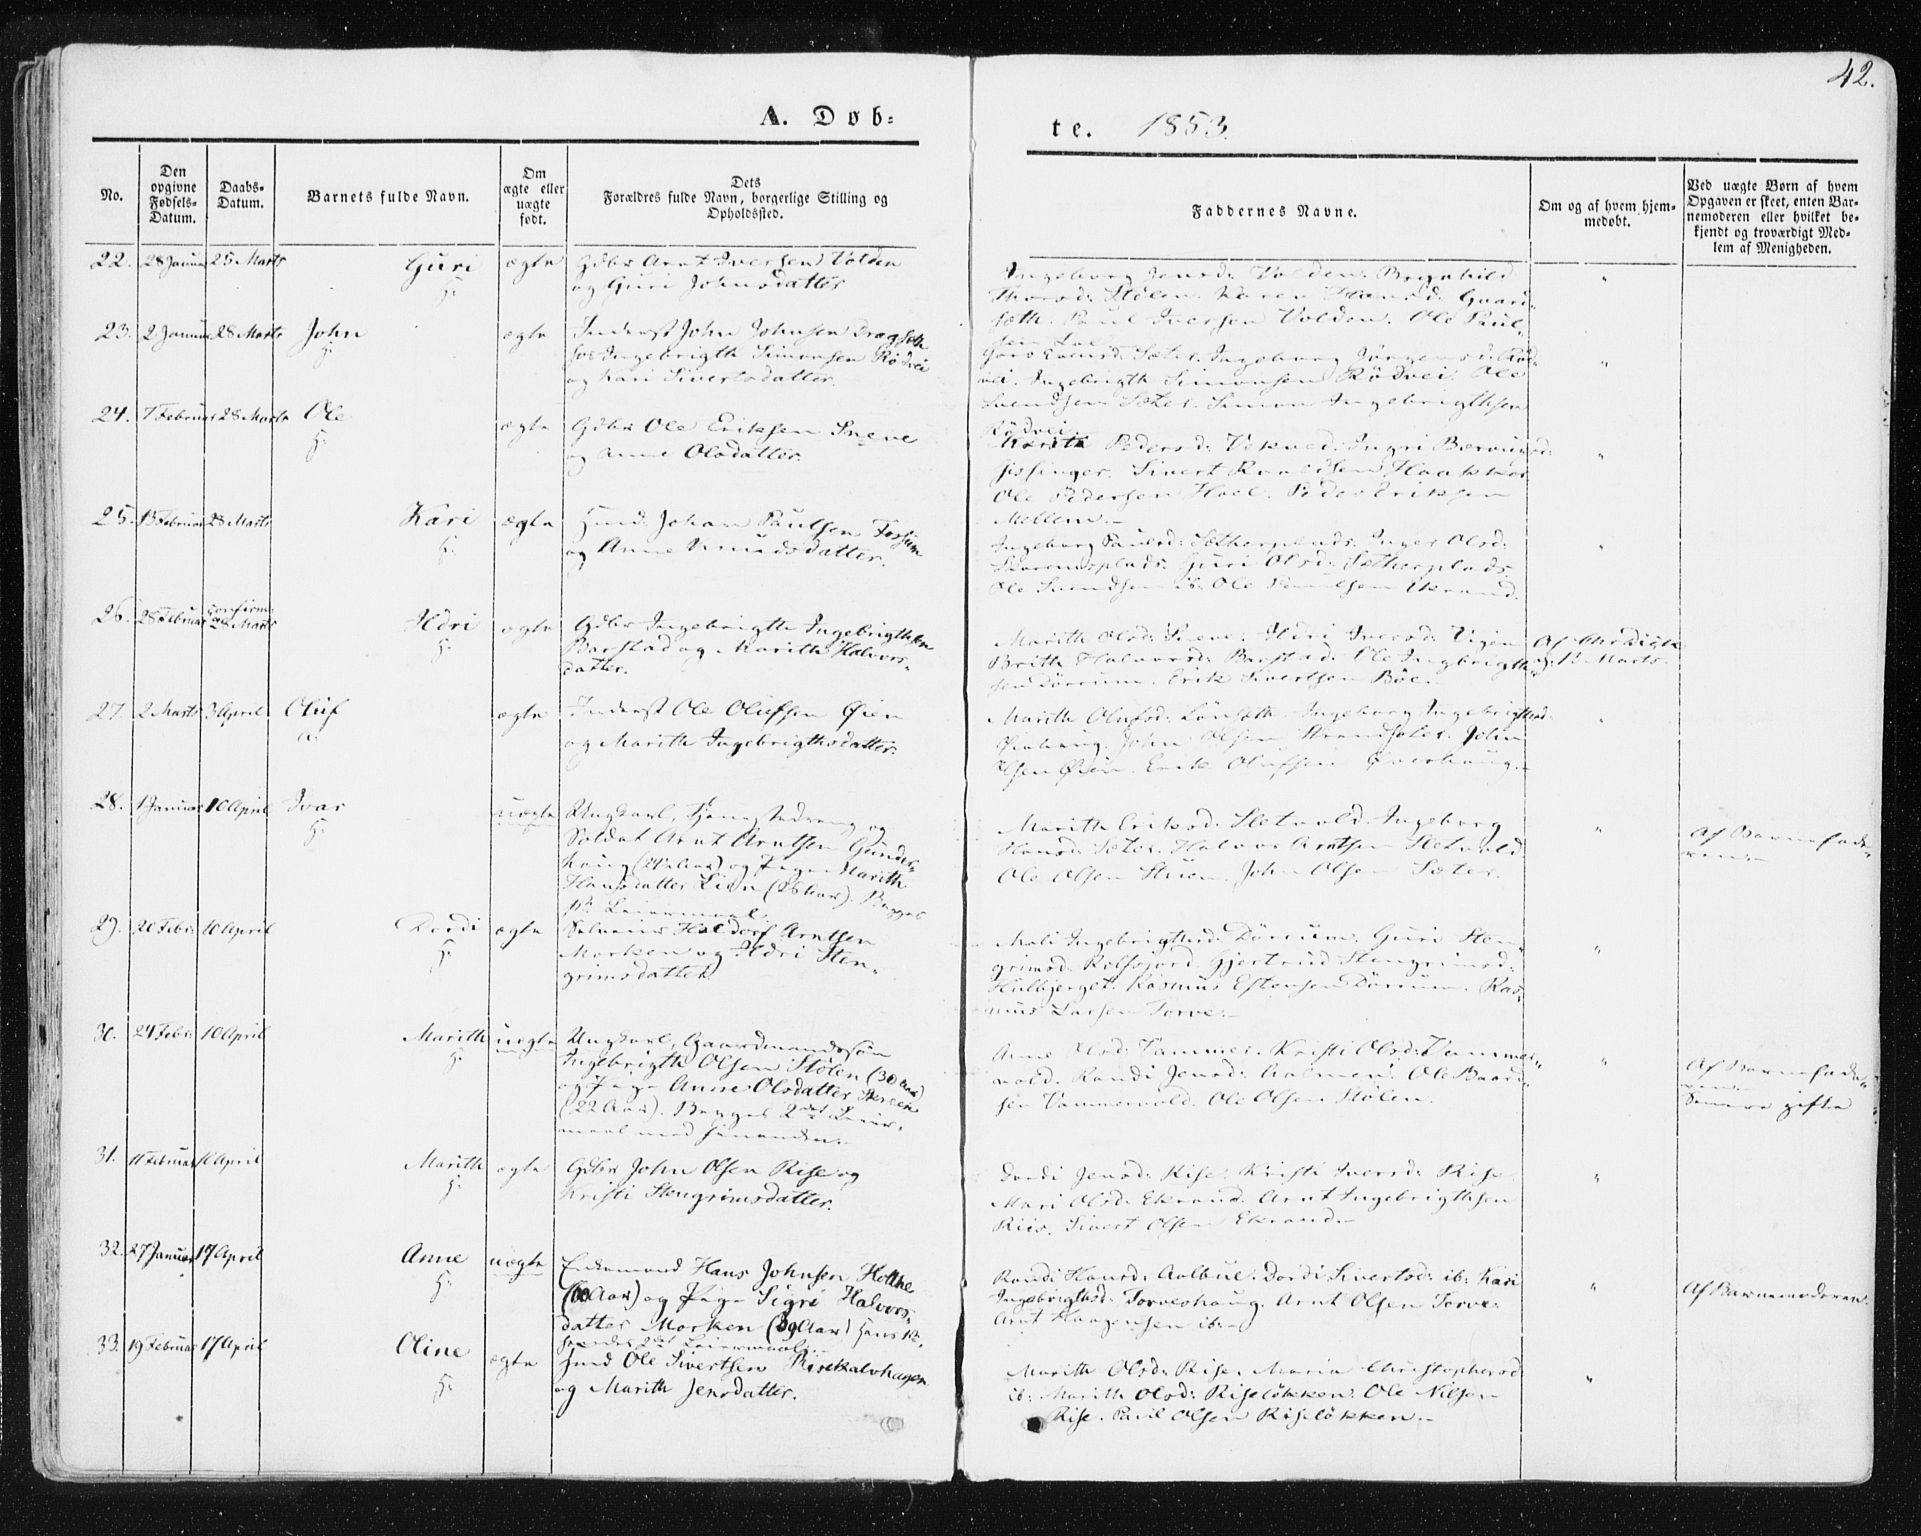 42.
A. Døb-
te. 1853.
No.
Den opgivne Fødsels-Datum.
Daabs-Datum.
Barnets fulde Navn.
Om ægte eller uægte født.
Dets Forældres fulde Navn, borgerlige Stilling og Opholdssted.
Faddernes Navne.
Om og af hvem hjem-
medøbt.
Ved uægte Børn af hvem
Opgaven er skeet, enten Bar-
nemoderen eller hvilket be-
kjendt og troværdigt Med-
lem af Menigheden.
22. 28 Januar 25 Marts Guri ægte Gdbr Arnt Iversen Volden
H: og Guri Johnsdatter
Ingeborg Jensd: Volden. Brynhild
Thorsd: Stølen. Karen Hansd:
Paul Iversen Volden. Ole Paul-
sen
23. 2 Januar 28 Marts John ægte Inderst John Johnsen Dragseth
H: hos Ingebrigth Simonsen Rødvei
og Kari Sivertsdatter.
Sæter. Ingeborg Jørgensd: Rød-
vei. Ingebrigth Simonsen Rødvei. Ole
Svendsen Sæter. Simon Ingebrigthsen
Rødvei.
24. 7 Februar 28 Marts Ole ægte Gdbr Ole Eriksen Sneve
H: og Anne Olsdatter
Pedersd: Vekved. Ingri
Sivert
Ole Pedersen Hoel. Peder Eriksen
Mellem.-
25. 13 Februar 28 Marts Kari ægte Husd. Johan Paulsen Fossum
H: og Anne Knudsdatter.
Ingeborg Paulsd: Sætherplads. Inger Olsd:
Guri Olsd: Sætherplads
Ole Svendsen ib: Ole
26. 28 Februar confirm. 28 Marts Ildri ægte Gdbr Ingebrigth Ingebrigthsen
H: Barstad og Marith Halvors-
datter.
Marith Olsd: Sneve. Ildri Iversd:
Britth Halvorsd: Barstad. Ole Ingebrigth-
sen Dørrum. Erik Sivertsen Bøe.-
1st Marts.
27. 2 Marts 3 April Oluf ægte Inderst Ole Olufsen Øien
og Marith Ingebrigthsdatter.
Marith Olufsd: Lønseth. Ingeborg Ingebrigthsd:
John Olsen John
Olsen Øien. Erik Olufsen
28. 1 Januar 10 April Ivar uægte Ungkarl, Tjenestedreng og
H: Soldat Arnt Arntsen Gunder-
haug (24 Aar) og Pige Marith
Hansdatter Lien (26 Aar). Begges
1st Leiermaal.
Marith Eriksd: Sletvold. Ingeborg
Hansd: Sæter. Halvor Arntsen Sletvold
Ole Olsen Stuen. John Olsen Sæter.
Af Barnefade-
ren.-
29. 20 Febr. 10 April Dordi ægte Haldorf Arntsen
H: Morken og Ildri Sten-
grimsdatter
Mali Ingebrigthsd: Dørrum. Guri Sten-
grimsd: Gjertrud Stengrimsd:
Rasmus Estensen Dørrum. Ras-
mus Larsen Torve.-
30. 24 Febr. 10 April Marith uægte Ungkarl, Gaardmandssøn
H: Ingebrigth Olsen Stølen (30 Aar)
og Pige Anne Olsdatter
(22 Aar). Begges 2det Leier-
maal med hinanden.-
Anne Olsd: Vammer. Kristi Olsd: Vammer-
vold. Randi Jensd: Ole Baard-
sen Vammervold. Ole Olsen Stølen.
Af Barnefade-
ren.-
Senere gifte
31. 11 Februar 10 April Marith ægte Gdbr John Olsen Rise og
H: Kristi Stengrimsdatter.
Dordi Jensd: Rise. Kristi Iversd: Rise.
Mari Olsd: Ekrand. Arnt Ingebrigthsen
Riis. Sivert Olsen Ekrand.-
32. 27 Januar 17 April Anne uægte Enkemand Hans Johnsen
H: (60 Aar) og Pige Sigri Halvors-
datter Morken (39 Aar) Hans 1st,
hendes 2det Leiermaal.-
Randi Hansd: Aalbue. Dordi Sivertsd: ib: Kari
Ingebrigthsd: Torveshaug. Arnt Olsen Torve.
Arnt Haagensen ib:-
Af Barnemoderen.
33. 19 Februar 17 April Oline ægte Husd Ole Sivertsen Risekalvhagen
H: og Marith Jensdatter.
Marith Olsd: Rise. Maria Christophersd:
ib: Marith Olsd: Riseløkken. Ole Nilsen
Rise. Paul Olsen Riseløkken.-